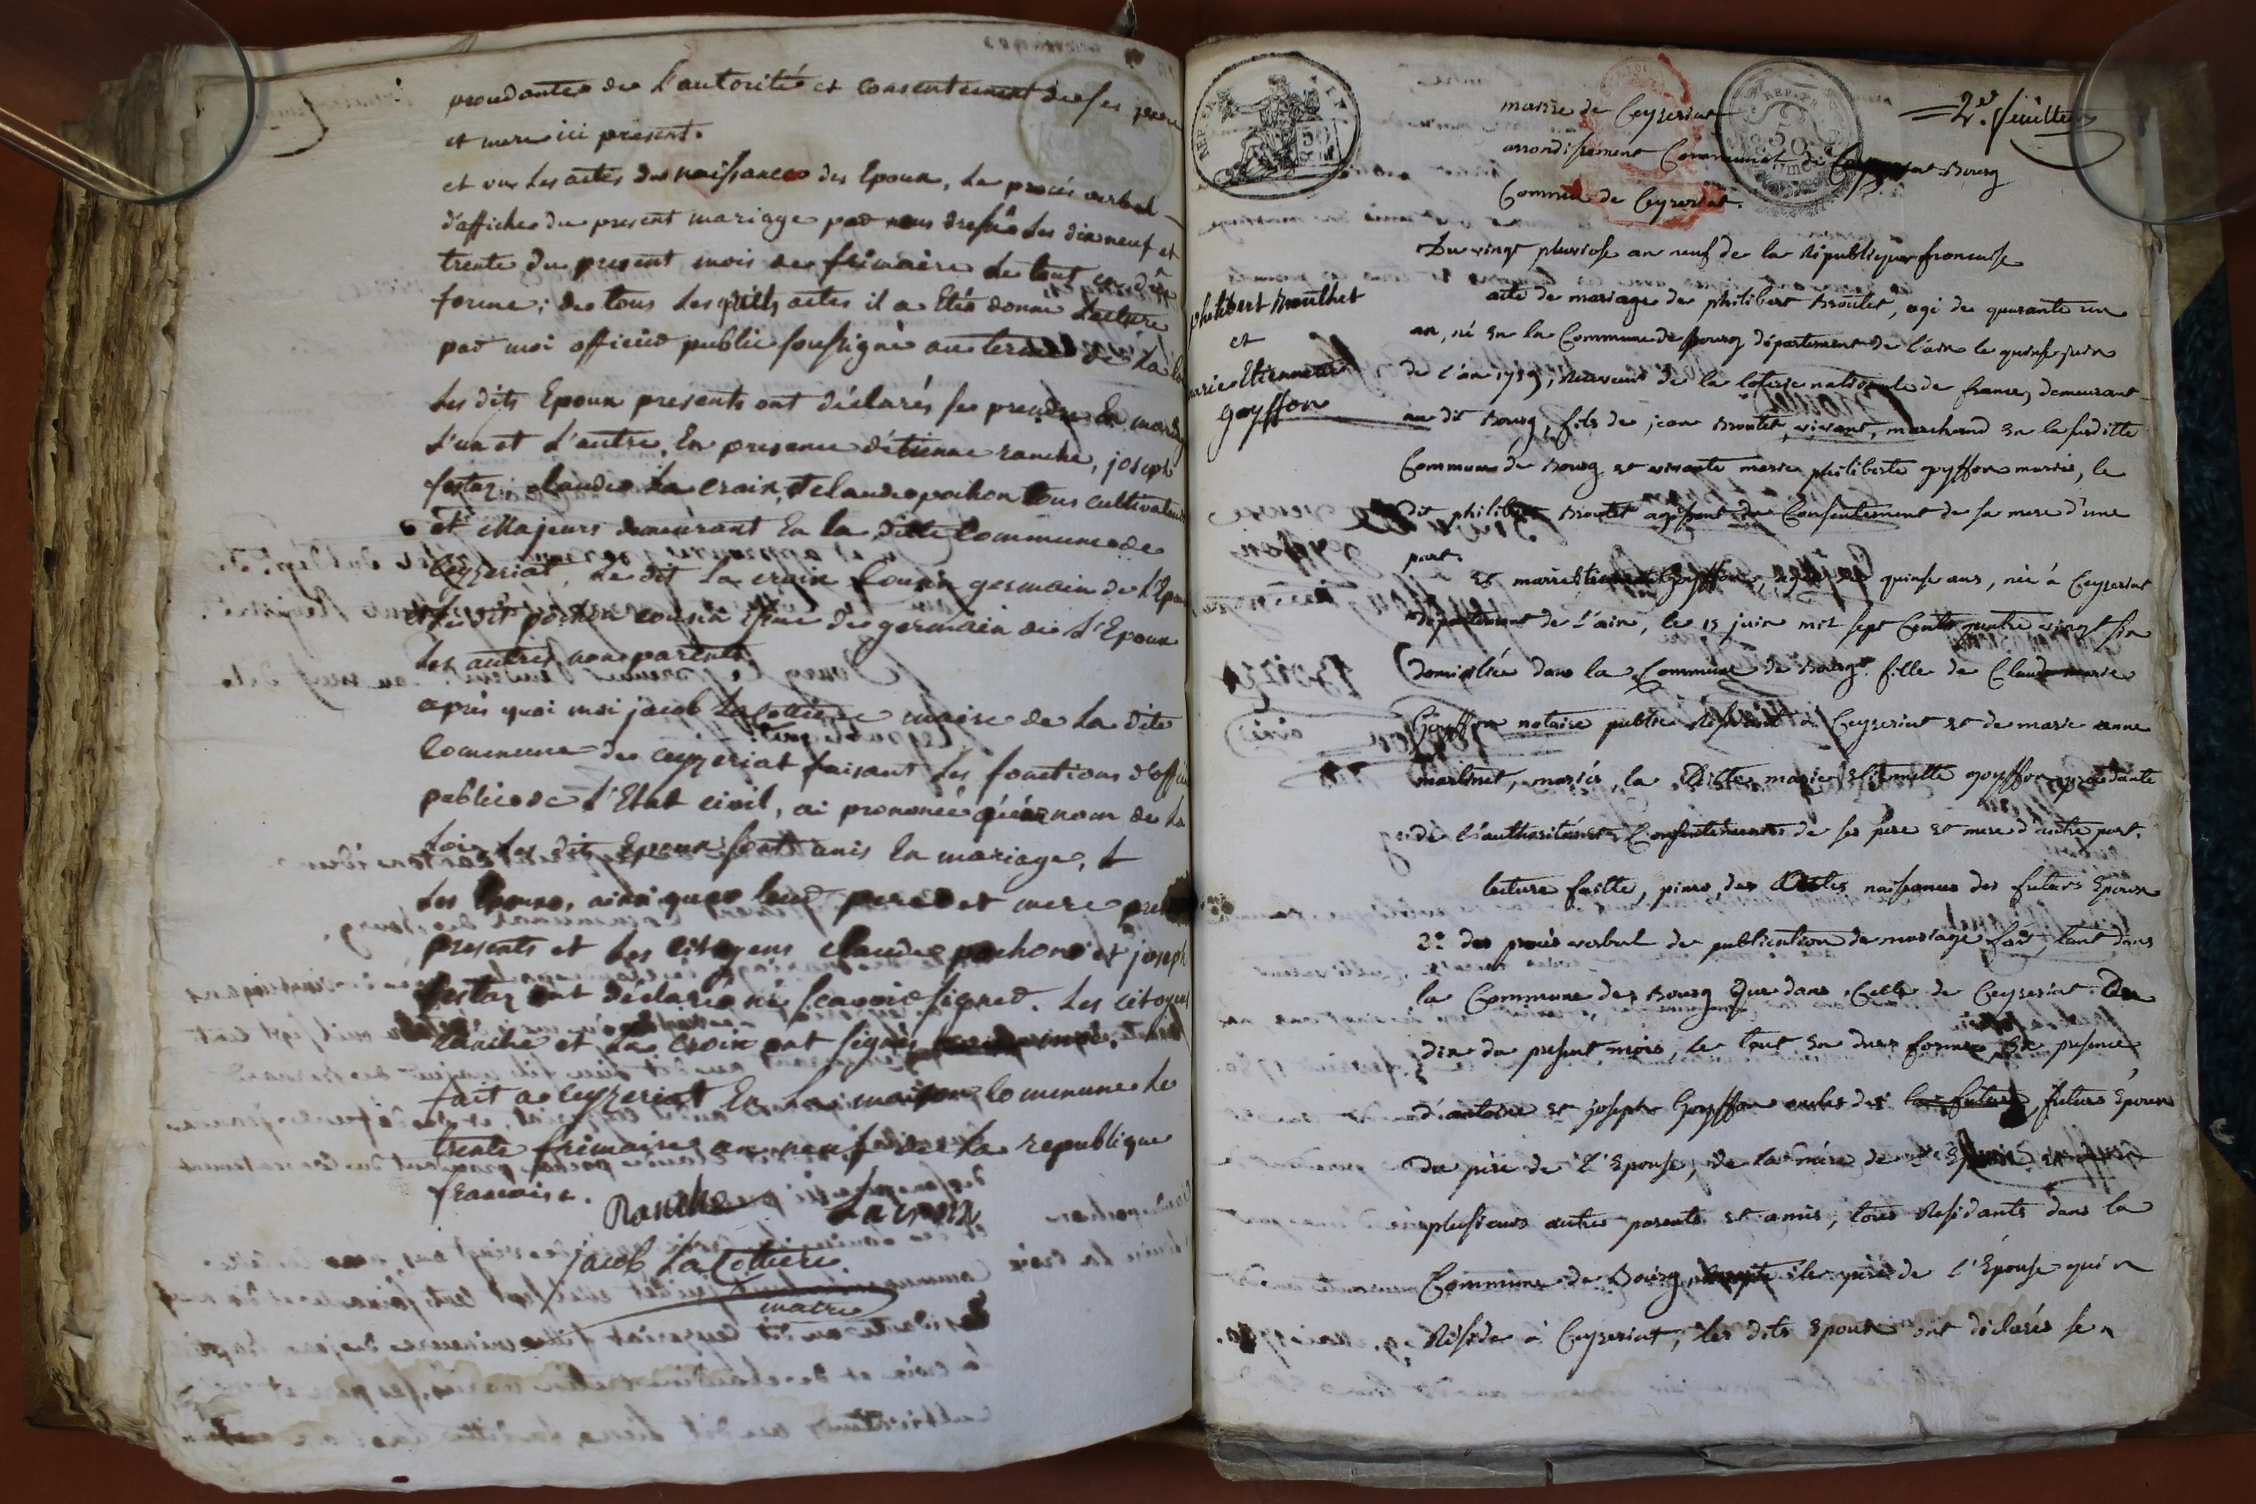 procedantes de L'autorité et consentement de ses pere
et mere ici présent.
et vu les actes de naissances des Epoux, Le procés verbal
d'affiches du present mariage par nous dressés les dix neuf et
trente du present mois de frimaire Le tout en dûe
forme; de tous lesquels actes il a Eté donné Lecture
par moi officier public soussigné au terme de La loi
Les dits Epoux presents ont déclarés se prendre En mariage
L'un et L'autre, En presence d'étienne ranche, joseph
festaz, claude La croix, et claude pochon tous cultivateurs
et Majeurs demeurant En la ditte Commune de
Ceyzeriat, Le dit La croix Cousin germain de L'Epouse
et Le dit pochon cousin issue de germain de L'Epoux
Les autres non parents.
après quoi moi jacob La Cottiere maire de La dite
Commune de ceyzeriat faisant Les fonctions d'officier
public de L'Etat civil, ai prononcé qu'au nom de La
Loi Les dits Epoux sont unis En mariage, et
Les Epoux, ainsi que leur pere et mere
presents et Les Citoyens claude pochon et joseph
festaz ont déclaré ne scavoir signer. Les Citoyens
Ranche et La Croix ont signés
fait a Ceyzeriat En La maison Commune Le
trente frimaire an neuf de La republique
francaise.
Ranche Lacroix
jacob La Cottiere
maire
2e. feuillet
mairie de Ceyzeriat
arrondissement Communal de Bourg
Commune de Ceyzeriat.
Du vingt pluviose an neuf de la République francaise
philibert Broulhet
et
marie Etiennette
goyffon
acte de mariage de philibert Broulet, agé de quarante un
an, né en la Commune de Bourg département de l'ain le quinse juin
de l'an 1759, Receveur de la loterie nationale de france, demeurant
au dit Bourg, fils de jean Broulet, vivant, marchand en la susditte
Commune de Bourg et vivante marie philiberte goyffon mariés, le
dit philibert Broulet agissant du Consentement de sa mere d'une
part.
Et marie Etiennette Goyffon, agée de quinse ans, née à Ceyzeriat
département de l'ain, le 15 juin mil sept Cents quatre vingt six
domiciliée dans la Commune de Bourg. fille de Claude marie
Goyffon notaire public Résidant à Ceyzeriat et de marie anne
martinet, mariés, la ditte marie Etiennette goyffon procédante
de l'authorité et Consentement de ses pere et mere d'autre part.
lecture faitte, primo, des Actes naissances des futurs Epoux
2°. des procés verbal de publication de mariage fait, tant dans
la Commune de Bourg que dans Celle de Ceyzeriat
dix du present mois, le tout en dues formes, En presence
d'antoine et joseph Goyffon oncles des futurs Epoux
du père de l'Epouse, de la mere de
plusieurs autres parents et amis, tous Résidants dans la
Commune de Bourg, excepté le père de l'Épouse qui
Réside à Ceyzeriat, les dits Epoux ont déclarés se